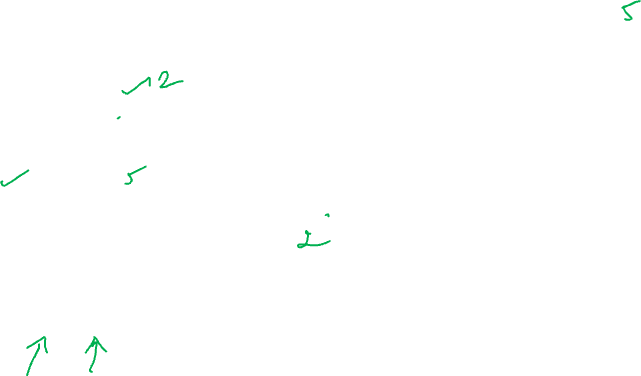 5
✓12
✓ 5
2
↑ ↑